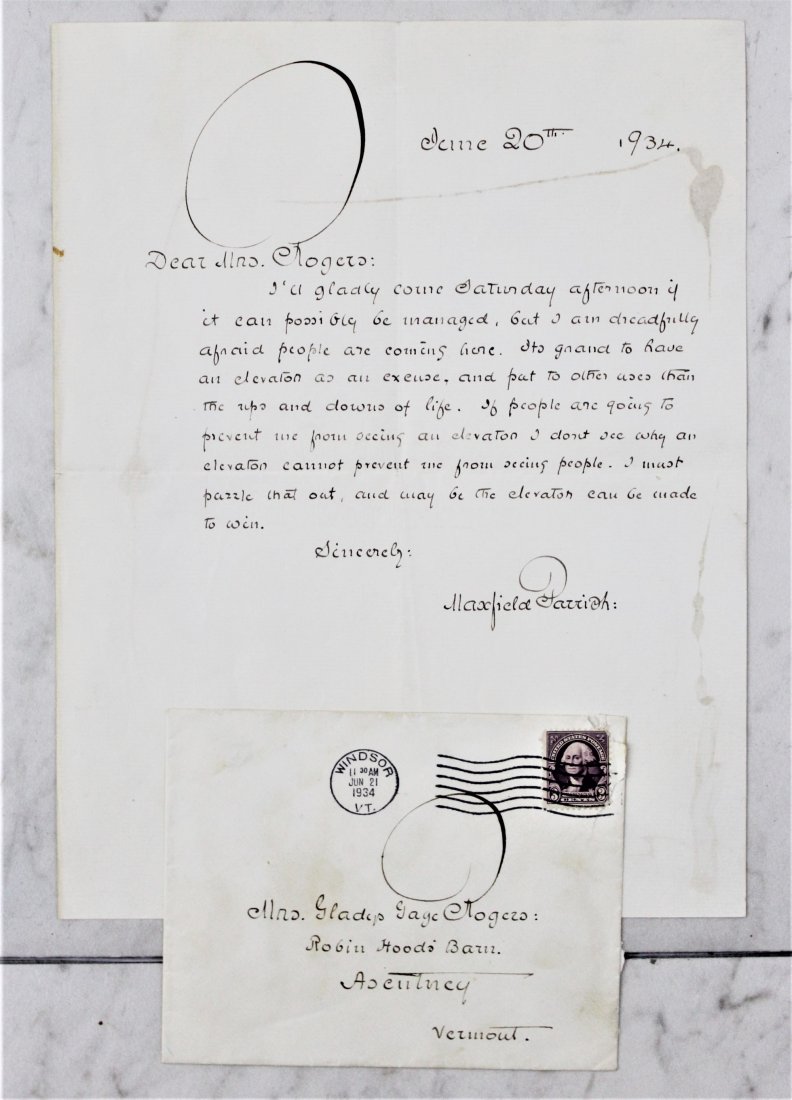 June 20th. 1934.
Dear Mrs. Rogers:
I'll gladly come Saturday afternoon if
it can possibly be managed, but I am dreadfully
afraid people are coming here. Its grand to have
an elevator as an excuse, and put to other uses than
the ups and downs of life. If people are going to
prevent me from seeing an elevator I dont see why an
elevator cannot prevent me from seeing people. I must
puzzle that out, and may be the elevator can be made
to win.
Sincerely:
Maxfield Parrish:
WINDSOR
11 30 AM
JUN 21
1934
VT.
UNITED STATES POSTAGE
3 3
Mrs. Gladys Gage Rogers:
Robin Hoods' Barn.
Ascutney
Vermont.